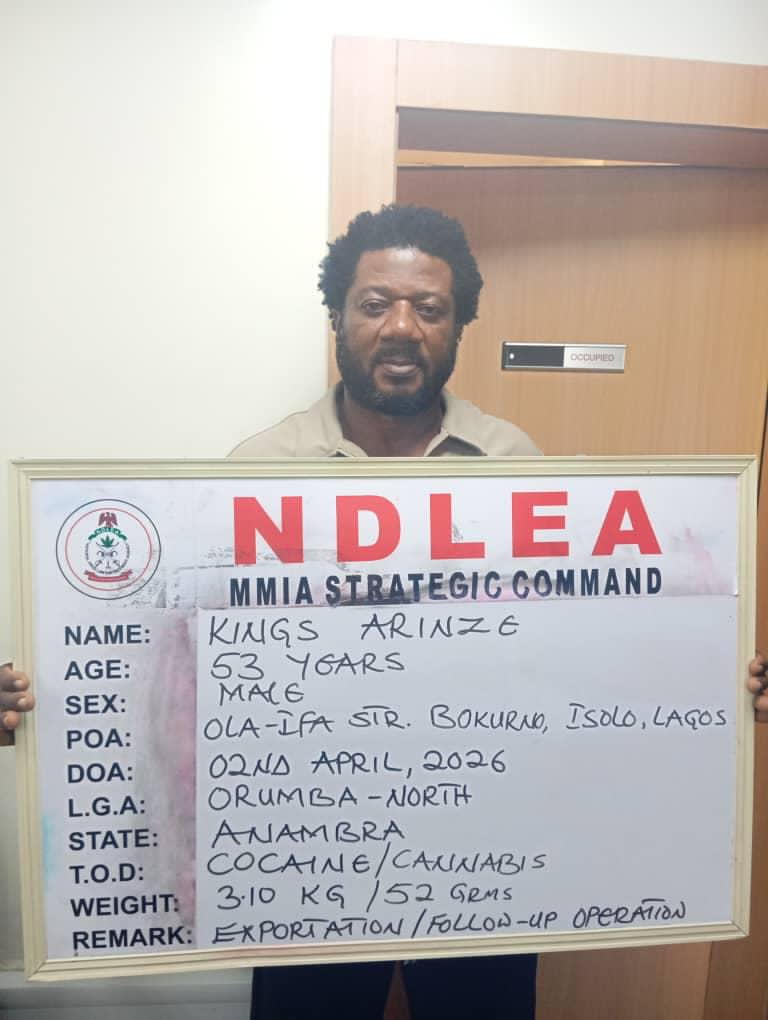 OCCUPIED
NDLEA
NDLEA
MMIA STRATEGIC COMMAND
NAME: KINGS ARINZE
AGE: 53 YEARS
SEX: MALE
POA: OLA-IFA STR. BOKURNO, ISOLO, LAGOS
DOA: 02ND APRIL, 2026
L.G.A: ORUMBA-NORTH
STATE: ANAMBRA
T.O.D: COCAINE/CANNABIS
WEIGHT: 3.10 KG /52 GRMS
REMARK: EXPORTATION/FOLLOW-UP OPERATION